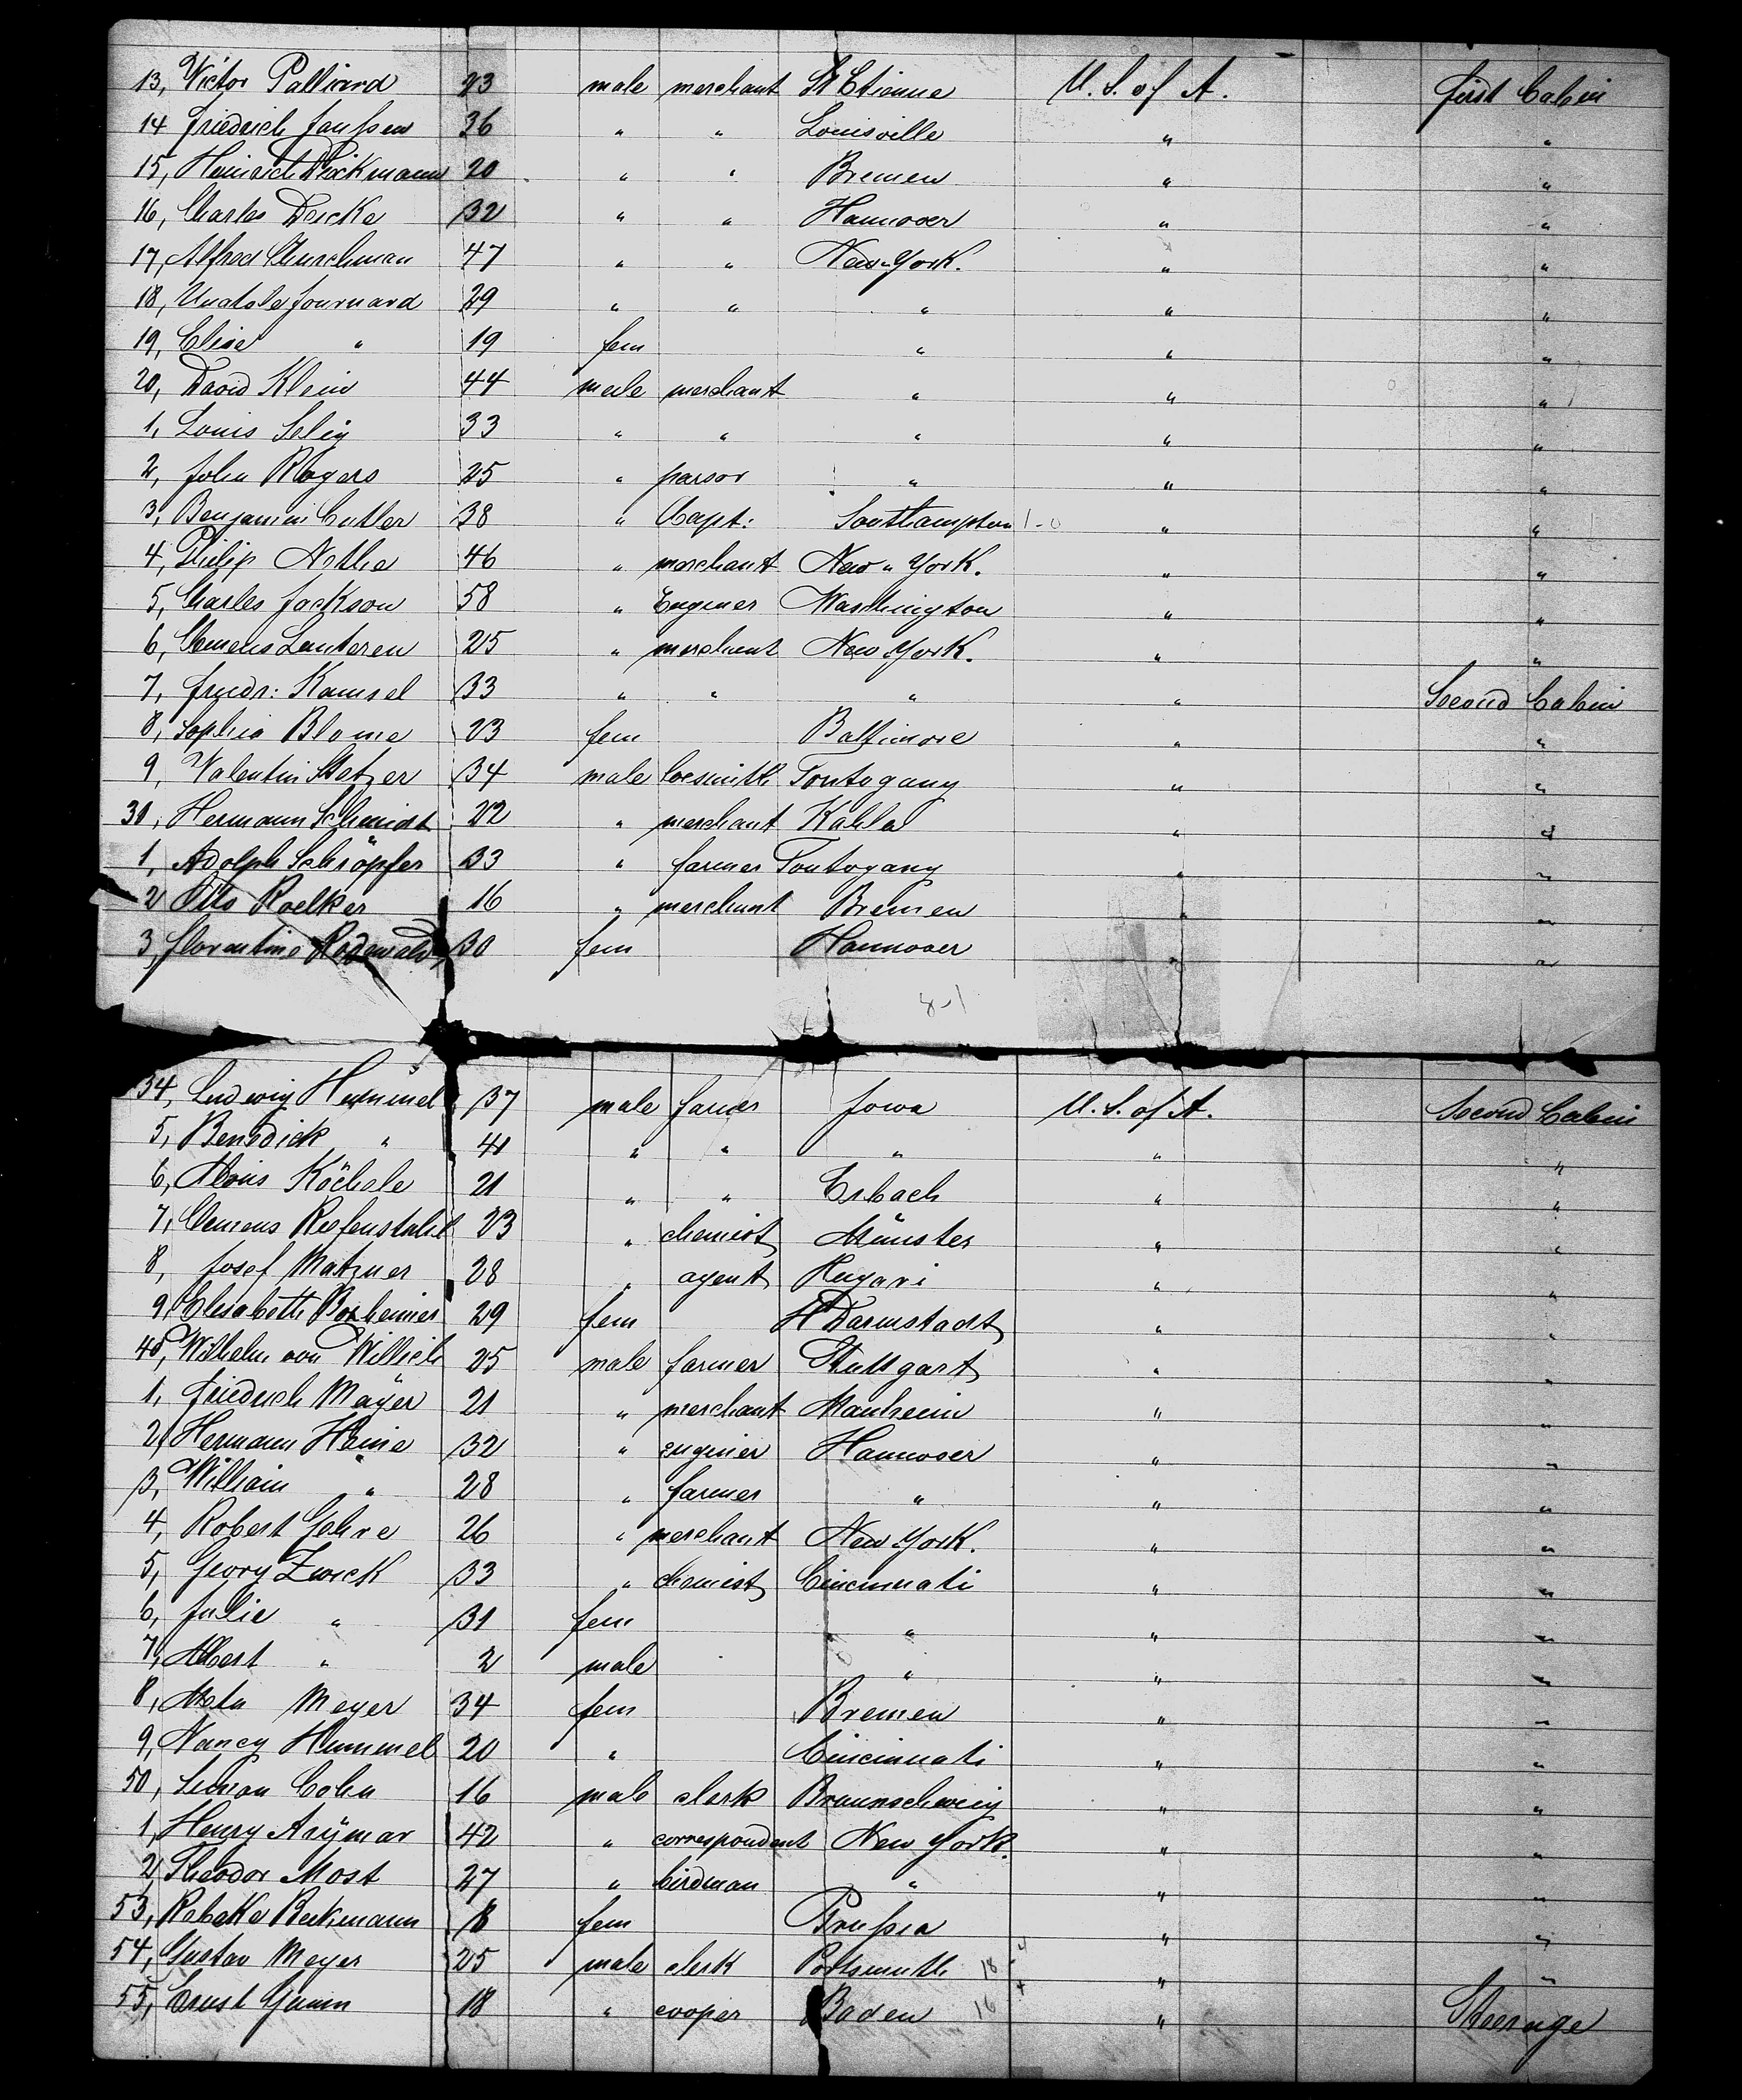 13, Victor Pallivard 23 male merchant St Etienne U. S. of A. first Cabin
14 Friedrich Janssen 36 " " Louisville " "
15, Heinrich Dieckmann 20 " " Bremen " "
16, Charles Deicke 32 " " Hannover " "
17, Alfred Churchman 47 " " New-York. " "
18, Anatole Journard 29 " " " " "
19, Elise " 19 fem " " "
20, David Klein 44 male merchant " " "
1, Louis Selig 33 " " " " "
2, John Rogers 25 " parsor " " "
3, Benjamin Cutler 38 " Capt: Southampton " "
4, Philip Nothe 46 " merchant New-York. " "
5, Charles Jackson 58 " Engineer Washington " "
6, Clemens Lauteren 25 " merchant New-York. " "
7, friedr: Kamsel 33 " " " " Second Cabin
8, Sophia Blome 23 fem Baltimore " "
9, Valentin Stetzer 34 male locsmith Tontogany " "
30, Hermann Schmidt 22 " merchant Kahla " "
1, Adolph Schröpfer 33 " farmer Tontogany " "
2 Otto Roelker 16 " merchant Bremen " "
3, florentine Rodewald 30 fem Hannover " "
8-1
34, Ludwig Hummel 37 male farmer Jowa U. S. of A. Second Cabin
5, Benedick " 41 " " " " "
6, Alois Köchele 21 " " Erbach " "
7, Clemens Riefenstahl 23 " chemist Münster " "
8, Josef Matzner 28 " agent Hugari " "
9, Elisabeth Borheimer 29 fem H Darmstadt " "
40, Wilhelm von Willich 25 male farmer Stuttgart " "
1, Friedrich Mayer 21 " merchant Manheim " "
2, Hermann Heine 32 " enginier Hannover " "
3, William " 28 " farmer " " "
4, Robert Gehre 26 " merchant New York. " "
5, Georg Zwick 33 " chemist Cincinnati " "
6, Julie " 31 fem " " "
7, Albert " 2 male " " "
8, Meta Meyer 34 fem Bremen " "
9, Nancy Hummel 20 " Cincinnati " "
50, Simon Cohn 16 male clerk Braunschweig " "
1, Henry Arymar 42 " correspondent New York. " "
2, Theodor Most 27 " birdman " " "
53, Rebeka Beckmann 18 fem Prussia " "
54, Gustav Meyer 25 male clerk Portsmuth 18 " "
55, Ernst Gamm 18 " cooper Baden 16 " Steerage